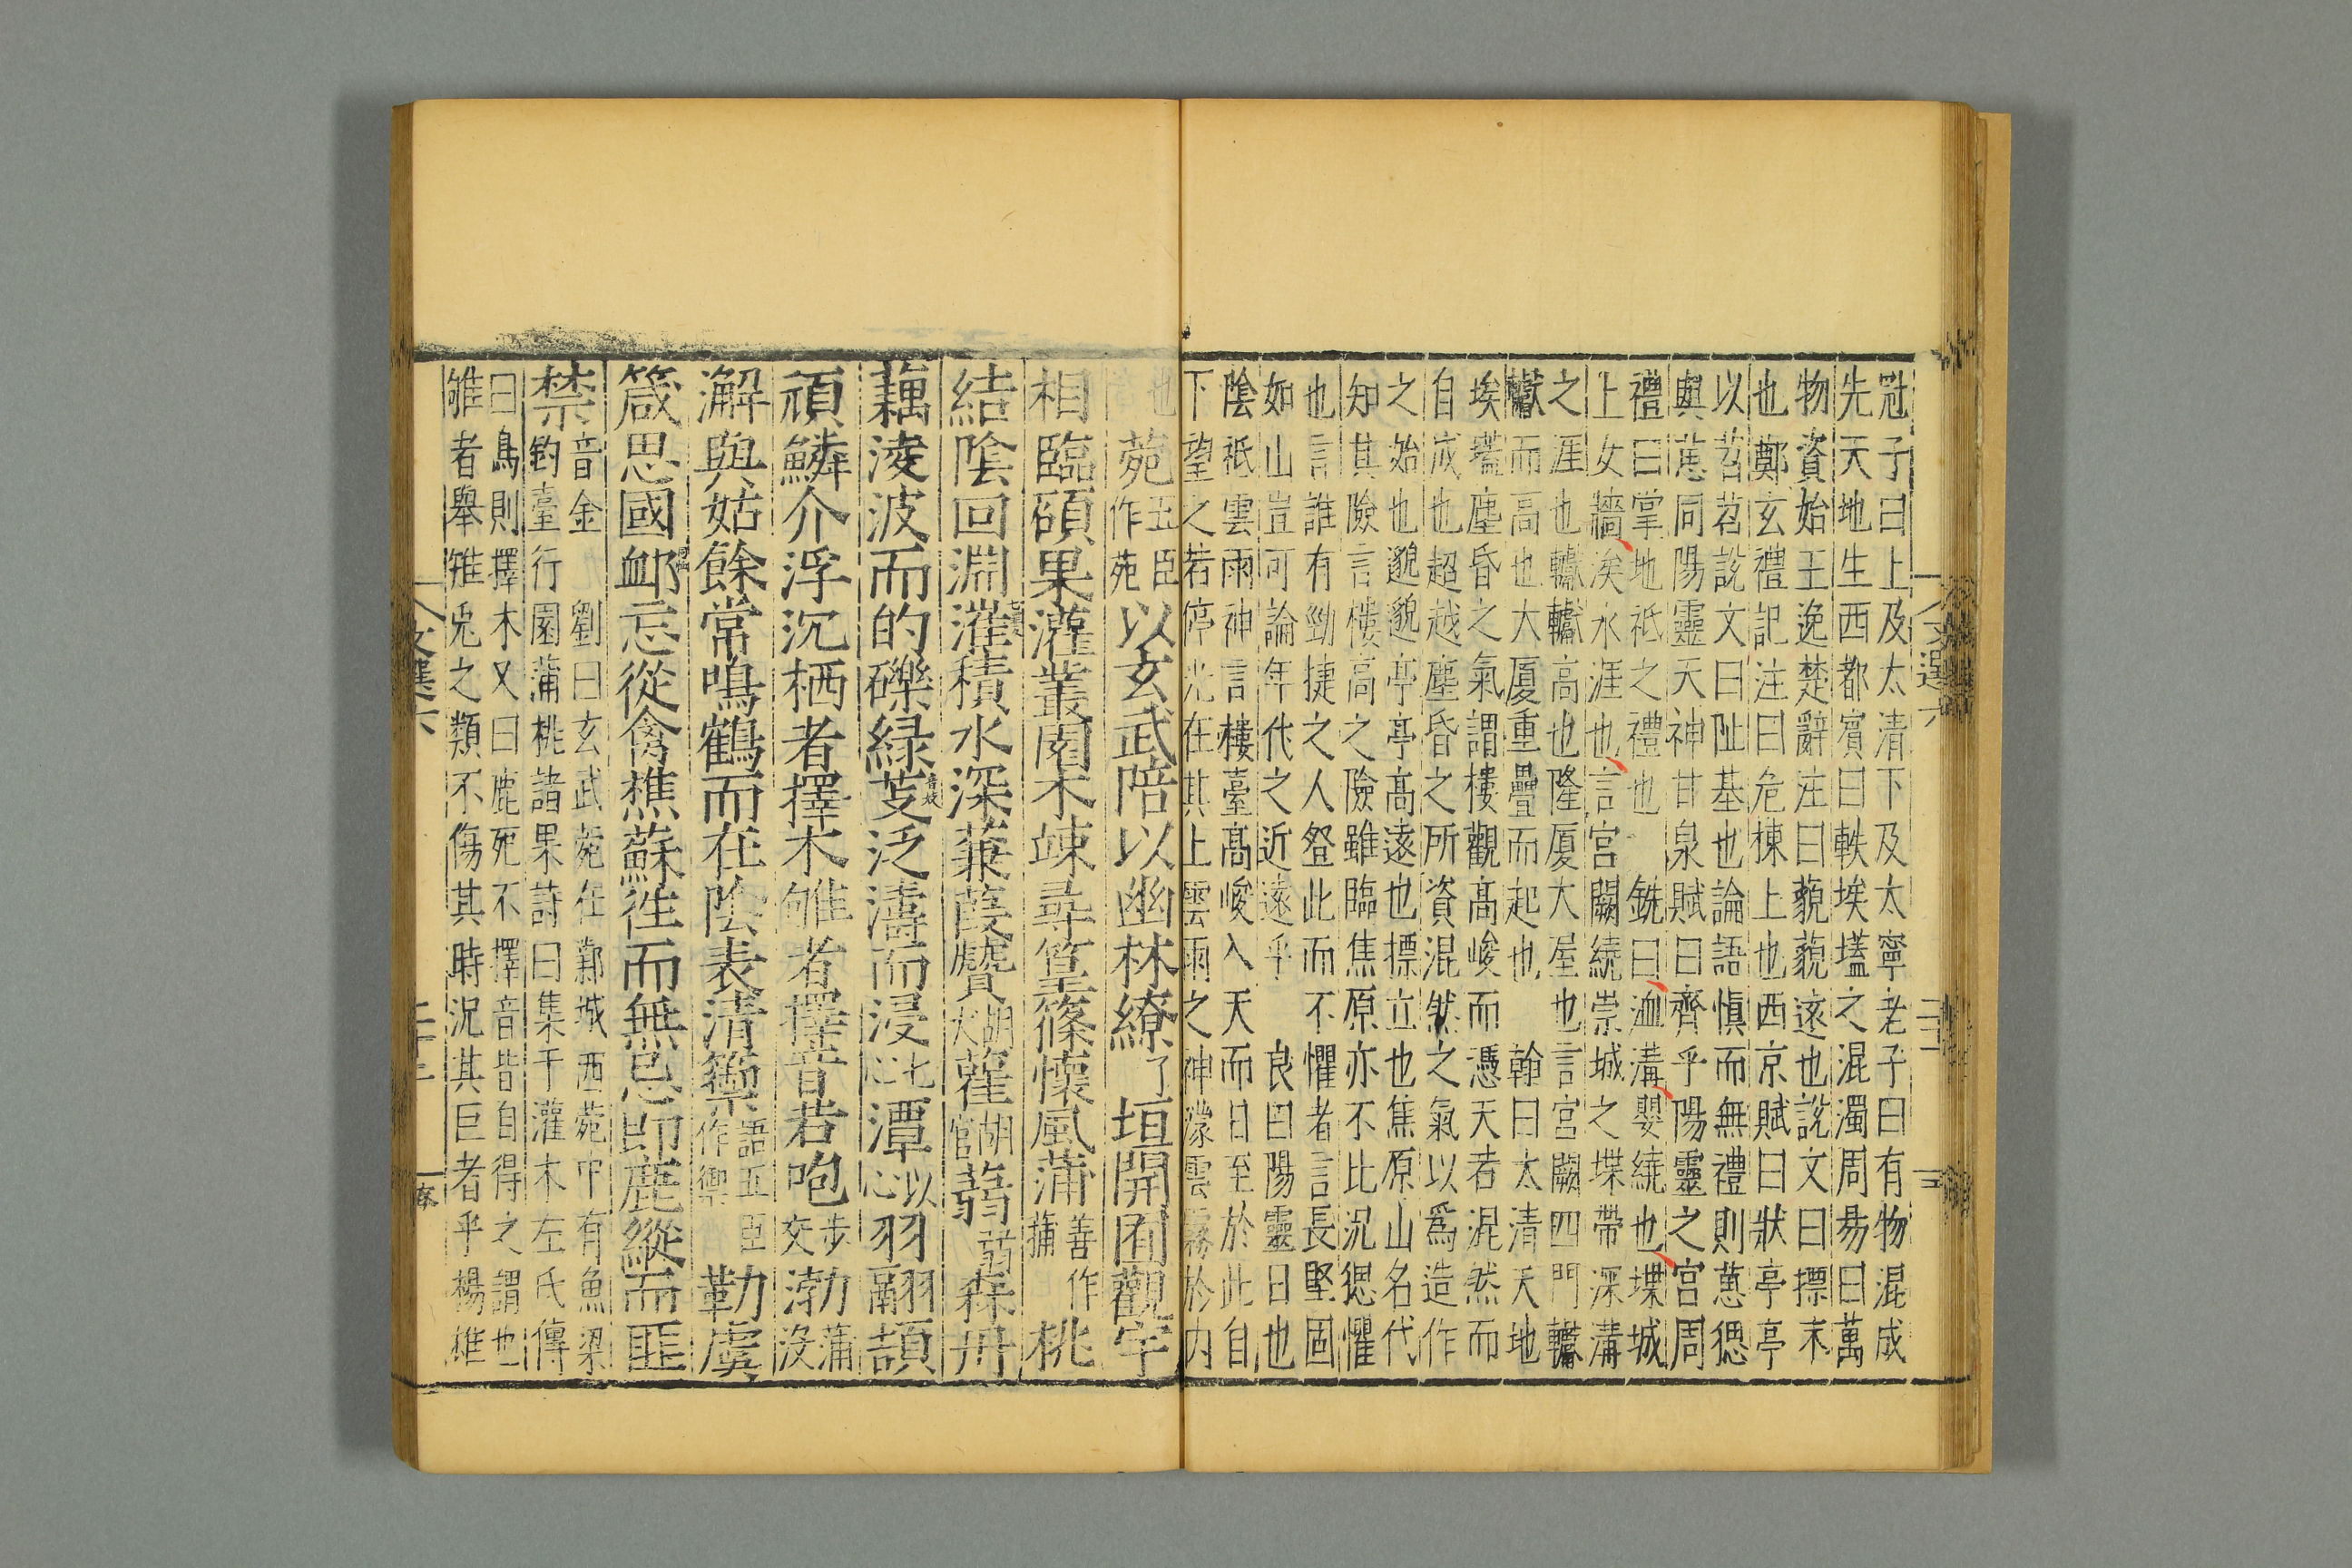 冠子曰上及太清下及太寧老子曰有物混成
先天地生西都賓曰軼埃壒之混濁周昜曰萬
物資始王逸楚辭注曰藐藐遠也說文曰摽末
也鄭玄禮記注曰危棟上也西京賦曰狀亭亭
以苕苕說文曰阯基也論語愼而無禮則葸偲
與葸同陽靈天神甘泉賦曰齊乎陽靈之宮周
禮曰掌地祇之禮也 銑曰洫溝嬰繞也堞城
上女牆涘水涯也言宮闕繞崇城之堞帶深溝
之涯也轥轥高也隆厦大屋也言宮闕四門轥
巘而高也大厦重疊而起也 翰曰太清天地
埃壒塵昏之氣謂樓觀髙峻而憑天者混然而
自成也超越塵昏之所資混然之氣以爲造作
之始也邈邈亭亭髙遠也摽立也焦原山名代
知其險言樓高之險雖臨焦原亦不比況偲懼
也言誰有勁捷之人登此而不懼者言長堅固
如山豈可論年代之近遠乎 良曰陽靈日也
陰祇雲雨神言樓臺髙峻入天而日至於此自
下望之若停光在其上雲雨之神濛雲霧於内
也
菀五臣作苑以玄武陪以幽林繚了垣開囿觀宇
相臨碩果灌叢圍木竦尋篁篠懷風蒲善作蒱桃
結陰回淵漼積水深蒹葭贙胡犬雚胡官蒻弱森丹
藕淩波而的礫緑芰泛濤而浸七心潭以心羽翮頡
頏鱗介浮沉栖者擇木雊者擇音若咆步交渤蒲沒
澥與姑餘常鳴鶴而在陰表清籞語五臣作禦勒虞
箴思國卹忘從禽樵蘇徃而無忌即鹿縱而匪
禁音金 劉曰玄武菀在鄴城西菀中有魚梁
釣臺行園蒲桃諸果詩曰集于灌木左氏傳
曰鳥則擇木又曰鹿死不擇音皆自得之謂也
雊者舉雉兎之類不傷其時況其巨者乎楊雄
文選六
文選六